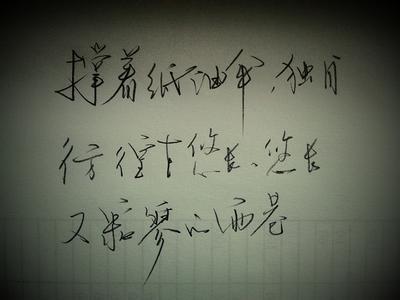 撑着纸油伞，独自
彷徨在悠长、悠长
又寂寥的雨巷